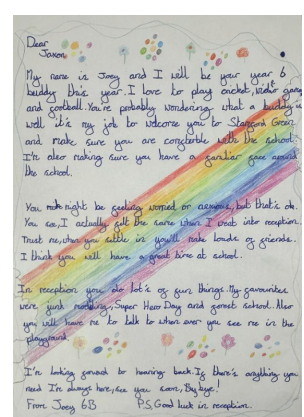 Dear
Jaxon
My name is Joey and I will be your year 6
buddy this year. I love to play cricket, video games
and football. You're probably wondering what a buddy is
well it's my job to welcome you to Green
and make sure you are comfortable with the school.
I'm also making sure you have a familiar face around
the school.
You might be feeling worried or anxious, but that's ok.
You see, I actually felt the same when I went into reception.
Trust me, when you settle in you'll make loads of friends.
I think you will have a great time at school.
In reception you do lot's of fun things. My favourites
were junk modling, Super Hero Day and forest school. Also
you will have me to talk to when ever you see me in the
playground.
I'm looking forward to hearing back. If there's anything you
need I'm always here, see you soon, Bye bye!
From Joey 6B P.S, Good luck in reception.